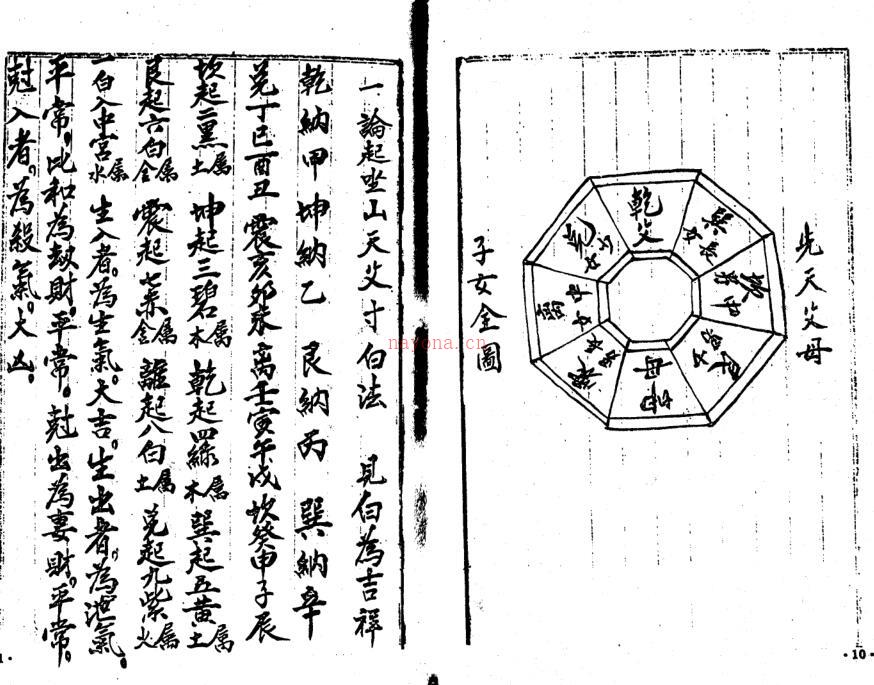 先天父母
乾父
巽長女
坎中男
艮少男
坤母
震長男
离中女
兌少女
子女全圖
·10·
一論起坐山天父寸白法 見白為吉祥
乾納甲 坤納乙 艮納丙 巽納辛
兌丁巳酉丑 震亥卯 离壬寅午戌 坎癸申子辰
坎起二黑属土 坤起三碧属木 乾起四綠属木 巽起五黄属土
艮起六白属金 震起七赤属金 離起八白属土 兌起九紫属火
一白入中宮属水 生入者。為生氣。大吉。生出者。為洩氣。
平常。比和為財。平常。尅出為妻財。平常。
尅入者。為殺氣。大凶。
nayona.cn